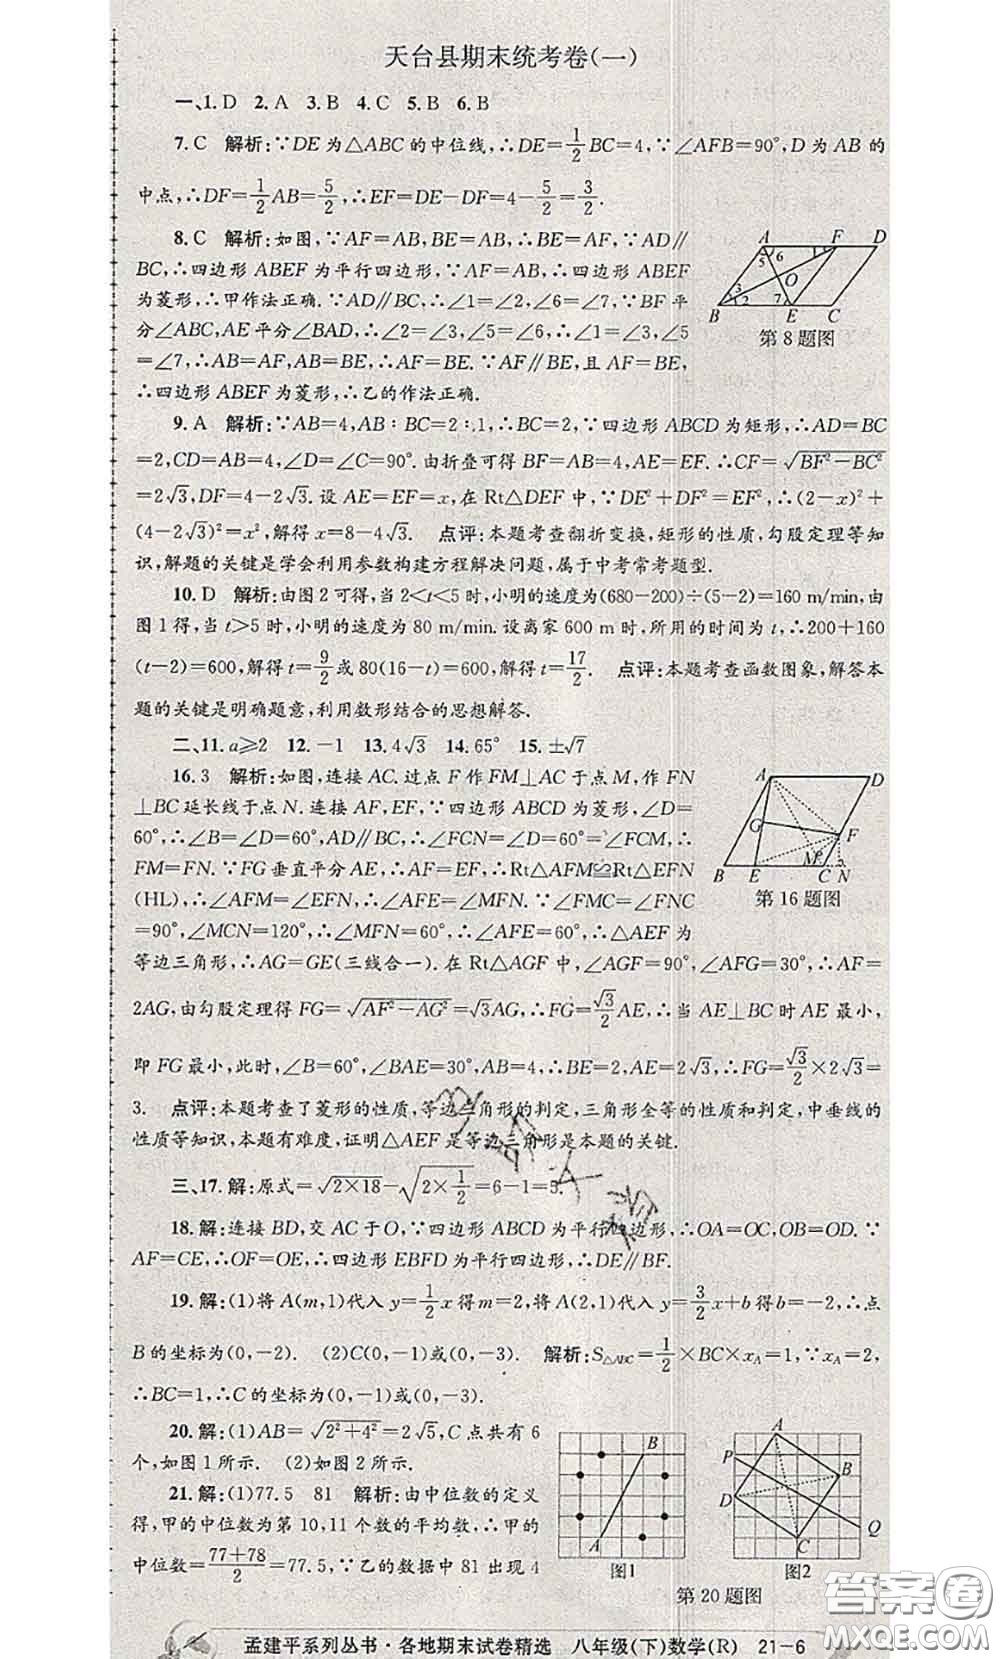 天台县期末统考卷(一)
一、1. D 2. A 3. B 4. C 5. B 6. B
7. C 解析:∵DE为△ABC的中位线,∴DE=1/2BC=4,∵∠AFB=90°,D为AB的
中点,∴DF=1/2AB=5/2,∴EF=DE-DF=4-5/2=3/2.
8. C 解析:如图,∵AF=AB,BE=AB,∴BE=AF,∵AD∥
BC,∴四边形ABEF为平行四边形,∵AF=AB,∴四边形ABEF
为菱形,∴甲作法正确.∵AD∥BC,∴∠1=∠2,∠6=∠7,∵BF平
分∠ABC,AE平分∠BAD,∴∠2=∠3,∠5=∠6,∴∠1=∠3,∠5
=∠7,∴AB=AF,AB=BE,∴AF=BE.∵AF∥BE,且AF=BE,
∴四边形ABEF为菱形,∴乙的作法正确.
A F D
5 6
O
3 2 7
B E C
第8题图
9. A 解析:∵AB=4,AB∶BC=2∶1,∴BC=2,∵四边形ABCD为矩形,∴AD=BC
=2,CD=AB=4,∠D=∠C=90°.由折叠可得BF=AB=4,AE=EF.∴CF=√(BF²-BC²)
=2√3,DF=4-2√3.设AE=EF=x,在Rt△DEF中,∵DE²+DF²=EF²,∴(2-x)²+
(4-2√3)²=x²,解得x=8-4√3. 点评:本题考查翻折变换,矩形的性质,勾股定理等知
识,解题的关键是学会利用参数构建方程解决问题,属于中考常考题型.
10. D 解析:由图2可得,当2<t<5时,小明的速度为(680-200)÷(5-2)=160 m/min,由
图1得,当t>5时,小明的速度为80 m/min.设离家600 m时,所用的时间为t,∴200+160
(t-2)=600,解得t=9/2或80(16-t)=600,解得t=17/2. 点评:本题考查函数图象,解答本
题的关键是明确题意,利用数形结合的思想解答.
二、11. a≥2 12. -1 13. 4√3 14. 65° 15. ±√7
16. 3 解析:如图,连接AC.过点F作FM⊥AC于点M,作FN
⊥BC延长线于点N.连接AF,EF,∵四边形ABCD为菱形,∠D=
60°,∴∠B=∠D=60°,AD∥BC,∴∠FCN=∠D=60°=∠FCM,∴
FM=FN.∵FG垂直平分AE,∴AF=EF,∴Rt△AFM≌Rt△EFN
(HL),∴∠AFM=∠EFN,∴∠AFE=∠MFN.∵∠FMC=∠FNC
=90°,∠MCN=120°,∴∠MFN=60°,∴∠AFE=60°,∴△AEF为
等边三角形,∴AG=GE(三线合一).在Rt△AGF中,∠AGF=90°,∠AFG=30°,∴AF=
2AG,由勾股定理得FG=√(AF²-AG²)=√3AG,∴FG=√3/2AE,∴当AE⊥BC时AE最小,
即FG最小,此时,∠B=60°,∠BAE=30°,AB=4,∴BE=2,AE=2√3,∴FG=√3/2×2√3=
3. 点评:本题考查了菱形的性质,等边三角形的判定,三角形全等的性质和判定,中垂线的
性质等知识,本题有难度,证明△AEF是等边三角形是本题的关键.
A D
G F
M
B E C N
第16题图
三、17. 解:原式=√(2×18)-√(2×1/2)=6-1=5.
18. 解:连接BD,交AC于O,∵四边形ABCD为平行四边形,∴OA=OC,OB=OD.∵
AF=CE,∴OF=OE,∴四边形EBFD为平行四边形,∴DE∥BF.
19. 解:(1)将A(m,1)代入y=1/2x得m=2,将A(2,1)代入y=3/2x+b得b=-2,∴点
B的坐标为(0,-2). (2)C(0,-1)或(0,-3). 解析:S△ABC=1/2×BC×xA=1,∵xA=2,
∴BC=1,∴C的坐标为(0,-1)或(0,-3).
20. 解:(1)AB=√(2²+4²)=2√5,C点共有6
个,如图1所示. (2)如图2所示.
21. 解:(1)77.5 81 解析:由中位数的定义
得,甲的中位数为第10,11个数的平均数,∴甲的
中位数=(77+78)/2=77.5,∵乙的数据中81出现4
B
A
图1
A
P
B
D
Q
C
图2
第20题图
孟建平系列丛书·各地期末试卷精选 八年级(下)数学(R) 21-6
答案圈
MXQE.COM